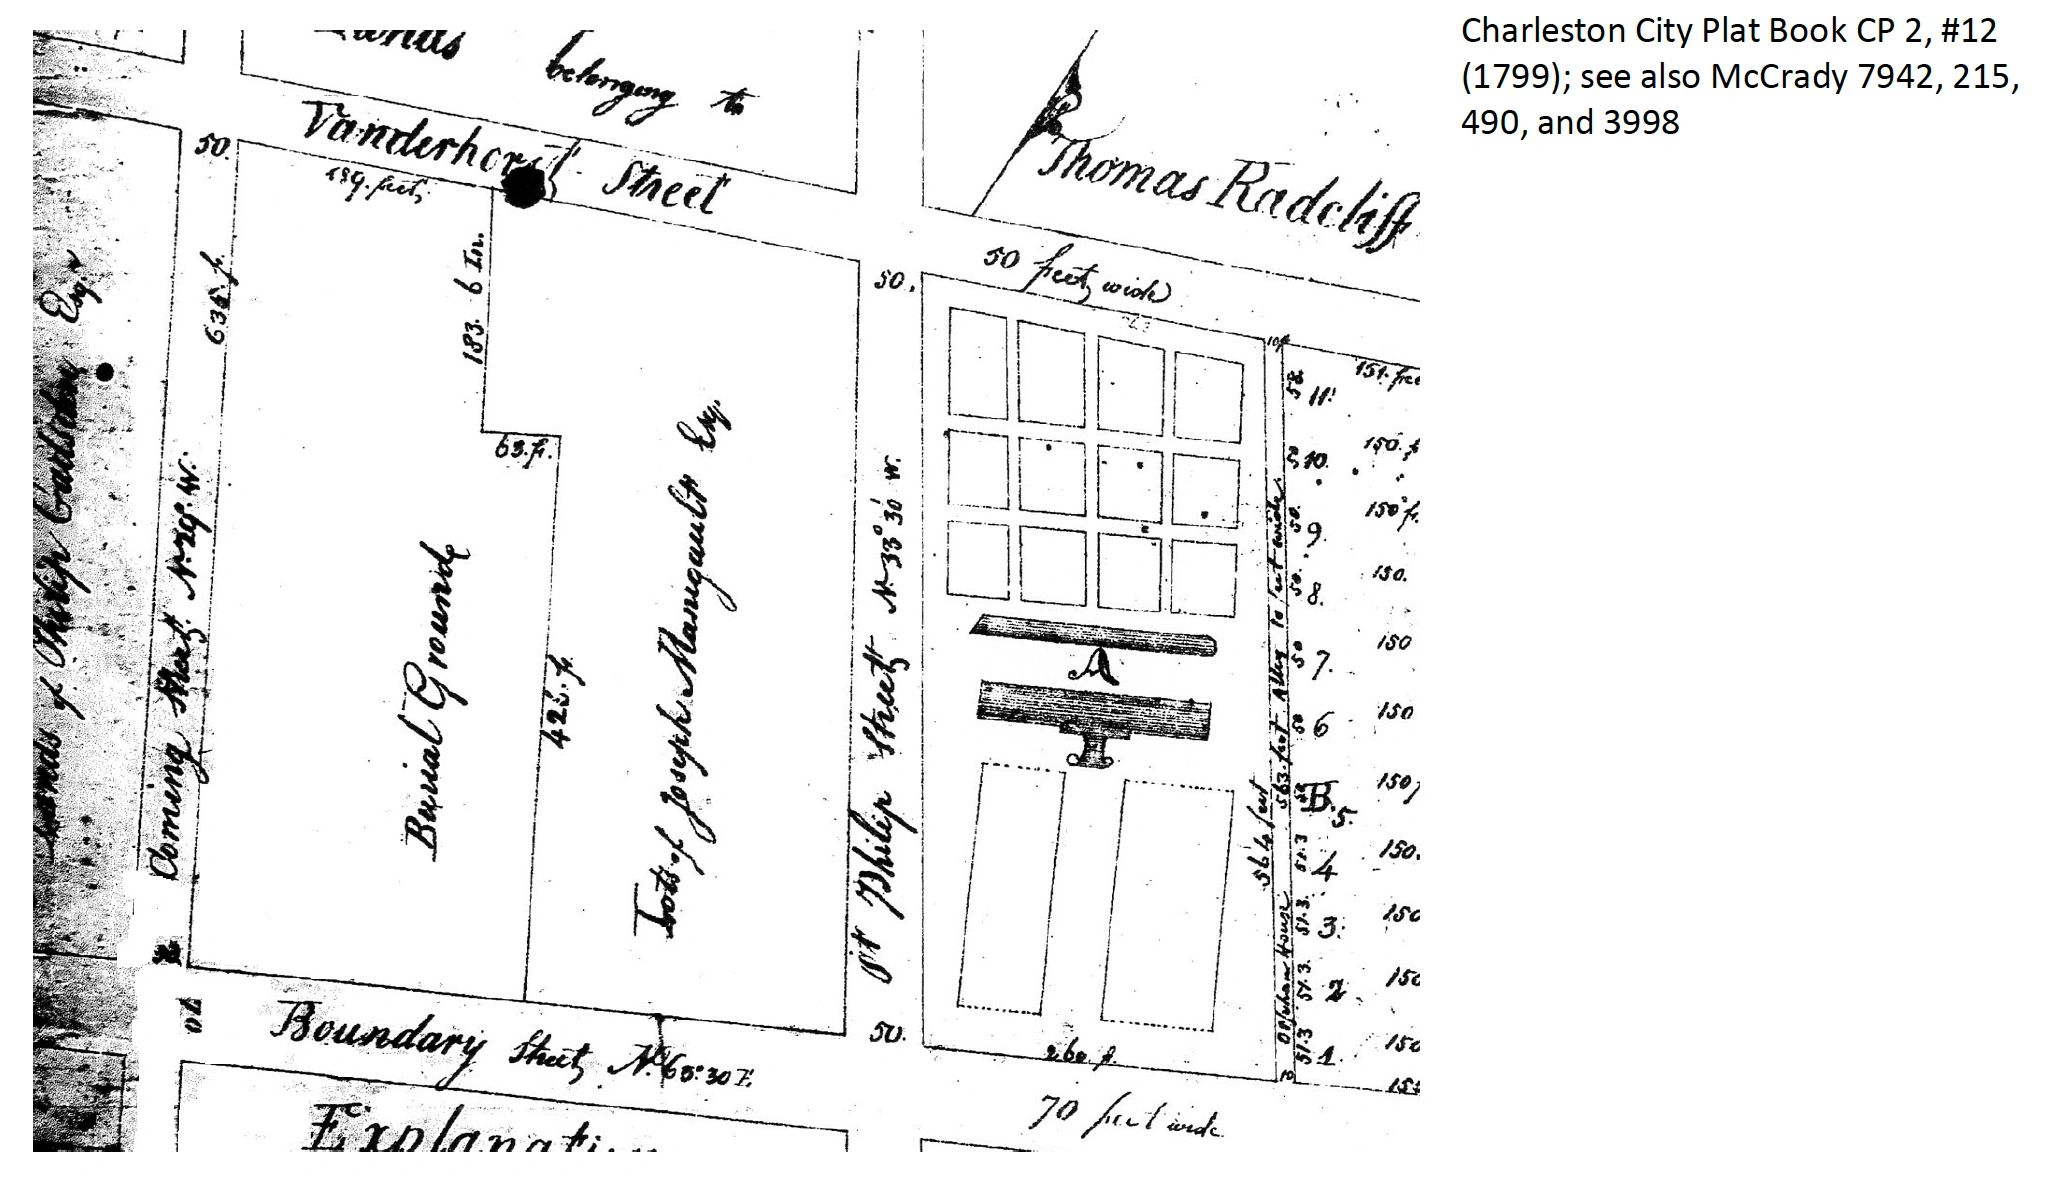 Charleston City Plat Book CP 2, #12
(1799); see also McCrady 7942, 215,
490, and 3998
belonging to
Vanderhorst Street
Thomas Radcliff
50.
159. feet,
183. 6 In.
634. f.
63. f.
425. f.
50 feet wide
50.
Lands of Philip Gadsden Esq.r
Coming Street. N. 29. W.
Burial Ground
Lots of Joseph Manigault Esq.
St Philip Street N. 33° 30' W.
A
10 f.
151. fee
11.
150. f.
10.
150 f.
50. 9.
150.
50. 8.
150
50 7.
150
50 6
150
B. 5.
150.
51.3 4
150
51.3. 3.
150
51.3. 2
150
51.3 1.
151
Orphan House Alley 10 feet wide.
563. feet
564 feet
260. f.
70
50.
Boundary Street N. 63° 30 E.
70 feet wide
Explanation